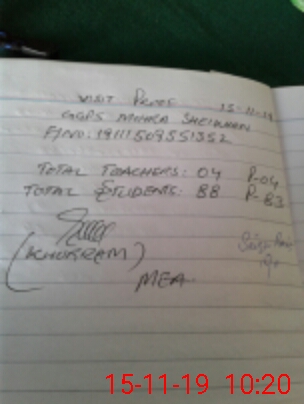 VISIT PROOF 15-11-19
GGPS MINHKA SHEIKHAN
F/NO: 19111509551352
TOTAL TEACHERS: 04 P-04
TOTAL STUDENTS: 88 P-83
(KHURRAM)
MEA
15-11-19 10:20